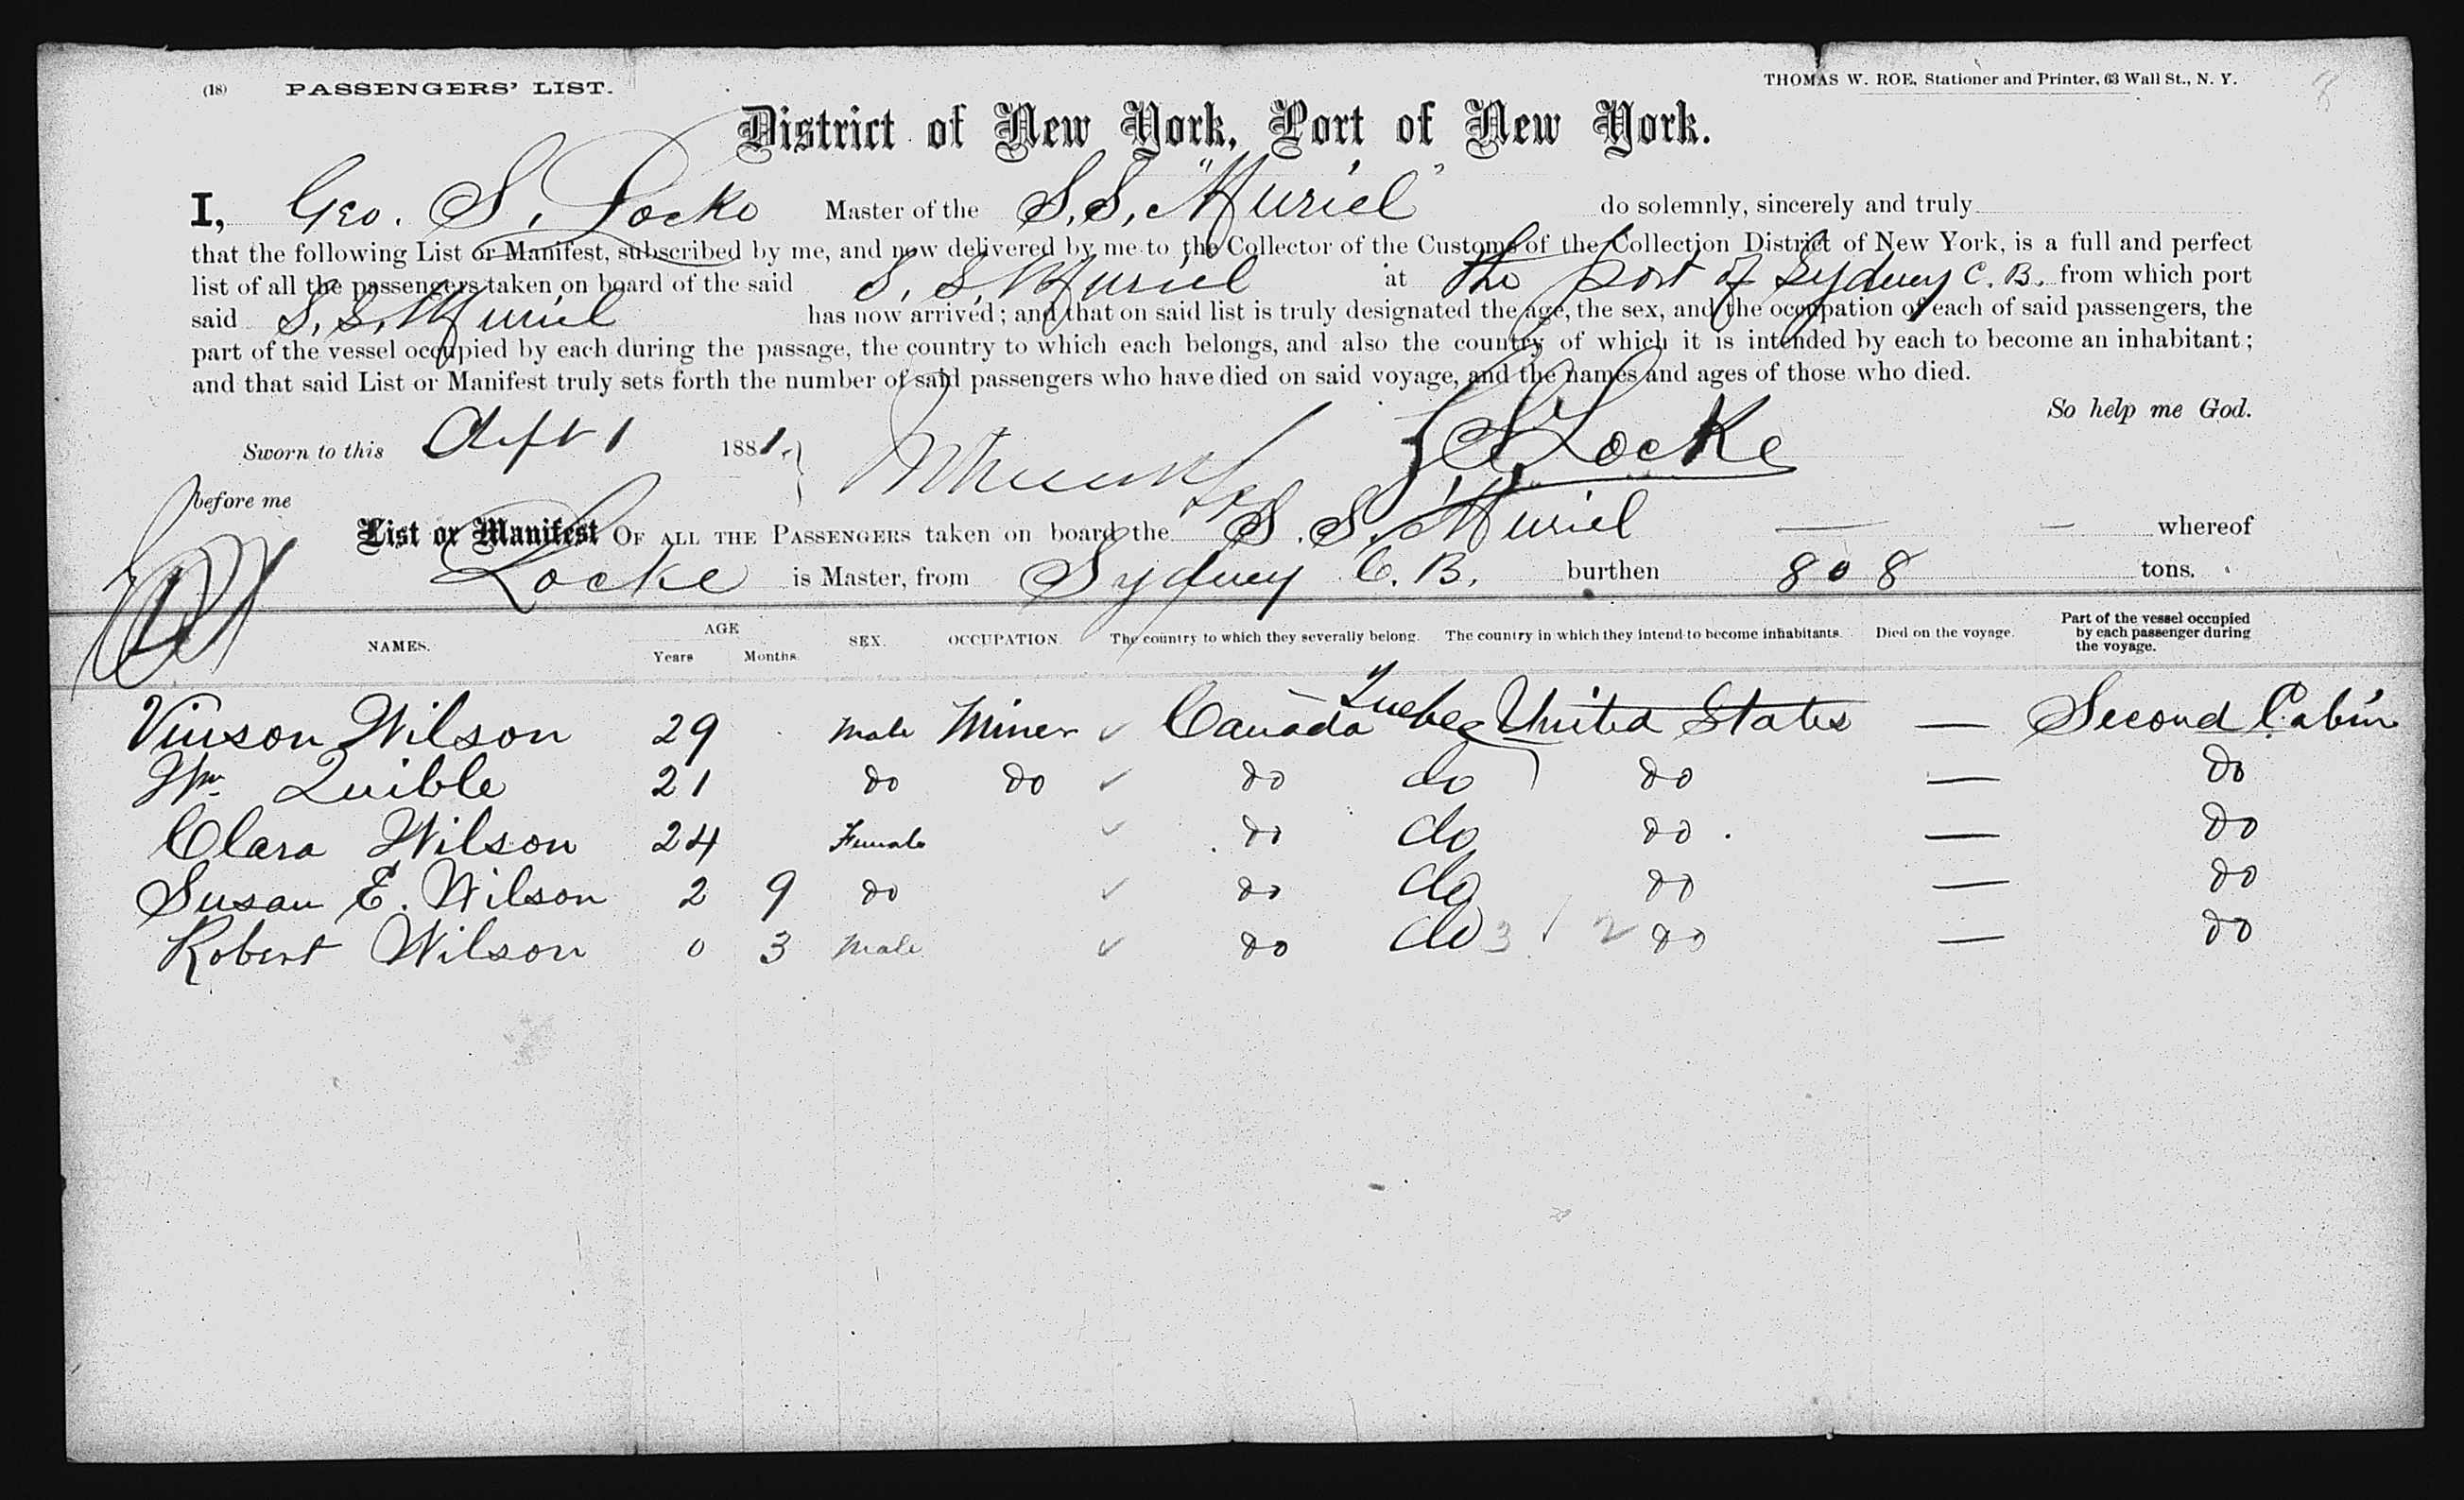 (18) PASSENGERS' LIST. THOMAS W. ROE, Stationer and Printer, 63 Wall St., N. Y. 8
District of New York, Port of New York.
I, Geo. S. Locke Master of the S.S. "Muriel" do solemnly, sincerely and truly
that the following List or Manifest, subscribed by me, and now delivered by me to the Collector of the Customs of the Collection District of New York, is a full and perfect
list of all the passengers taken on board of the said S. S. Muriel at the port of Sydney C. B. from which port
said S. S. Muriel has now arrived; and that on said list is truly designated the age, the sex, and the occupation of each of said passengers, the
part of the vessel occupied by each during the passage, the country to which each belongs, and also the country of which it is intended by each to become an inhabitant;
and that said List or Manifest truly sets forth the number of said passengers who have died on said voyage, and the names and ages of those who died.
So help me God.
Sworn to this Sept 1 1881. G S Locke
before me
List or Manifest OF ALL THE PASSENGERS taken on board the S. S. Muriel — — whereof
Locke is Master, from Sydney C. B. burthen 808 tons.
NAMES. AGE Years Months. SEX. OCCUPATION. The country to which they severally belong. The country in which they intend to become inhabitants. Died on the voyage. Part of the vessel occupied by each passenger during the voyage.
Vinson Wilson 29 Male Miner ✓ Canada Quebec United States — Second Cabin
Wm Quible 21 do do ✓ do do do — do
Clara Wilson 24 Female ✓ do do do — do
Susan E. Wilson 2 9 do ✓ do do do — do
Robert Wilson 0 3 Male ✓ do do 3 / 2 do — do